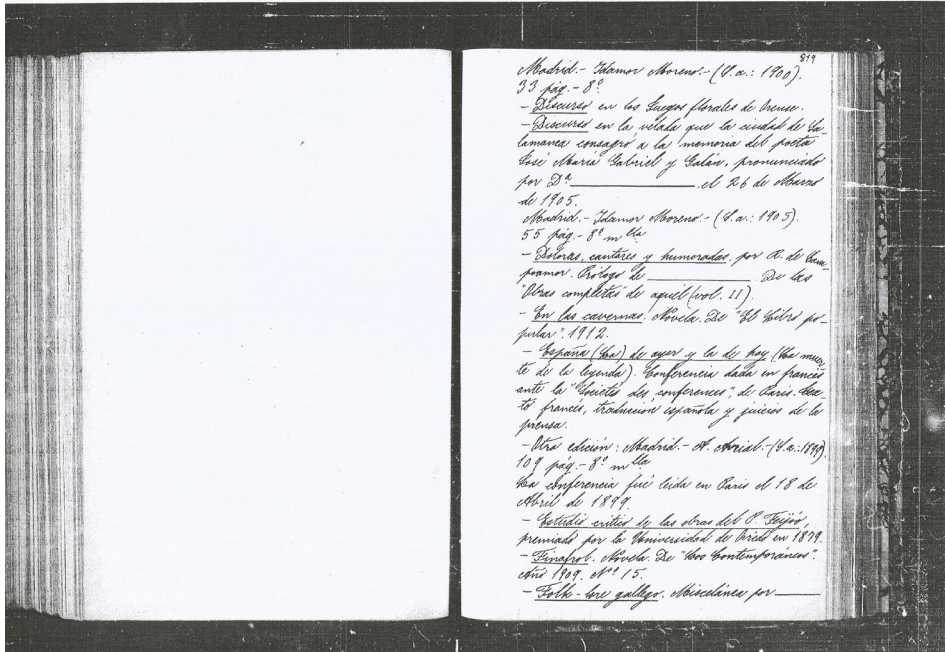 819
Madrid.- Idamor Moreno.- (S.a.: 1900).
33 pág.- 8º.
- Discurso en los Juegos florales de Orense.
- Discurso en la velada que la ciudad de Sa-
lamanca consagró a la memoria del poeta
José María Gabriel y Galán, pronunciado
por Dª ____________ el 26 de Marzo
de 1905.
Madrid.- Idamor Moreno.- (S.a.: 1905).
55 pág.- 8º mlla
- Doloras, cantares y humoradas, por R. de Cam-
poamor. Prólogo de ____________ De las
"Obras completas de aquél (vol. II).
- En las cavernas. Novela. De "El Libro po-
pular". 1912.
- España (La) de ayer y la de hoy (La muer-
te de la leyenda). Conferencia dada en francés
ante la "Societés des conferences", de Paris. Tex-
to francés, traducción española y juicios de la
prensa.
- Otra edición: Madrid.- A. Avrial.- (S.a.: 1899).
109 pág.- 8º mlla
La conferencia fué leida en Paris el 18 de
Abril de 1899.
- Estudio crítico de las obras del P. Feijóo,
premiado por la Universidad de Oviedo en 1879.
- Finafrol. Novela. De "Los Contemporáneos".
Año 1909. Nº 15.
- Folk-lore gallego. Miscelánea por ______